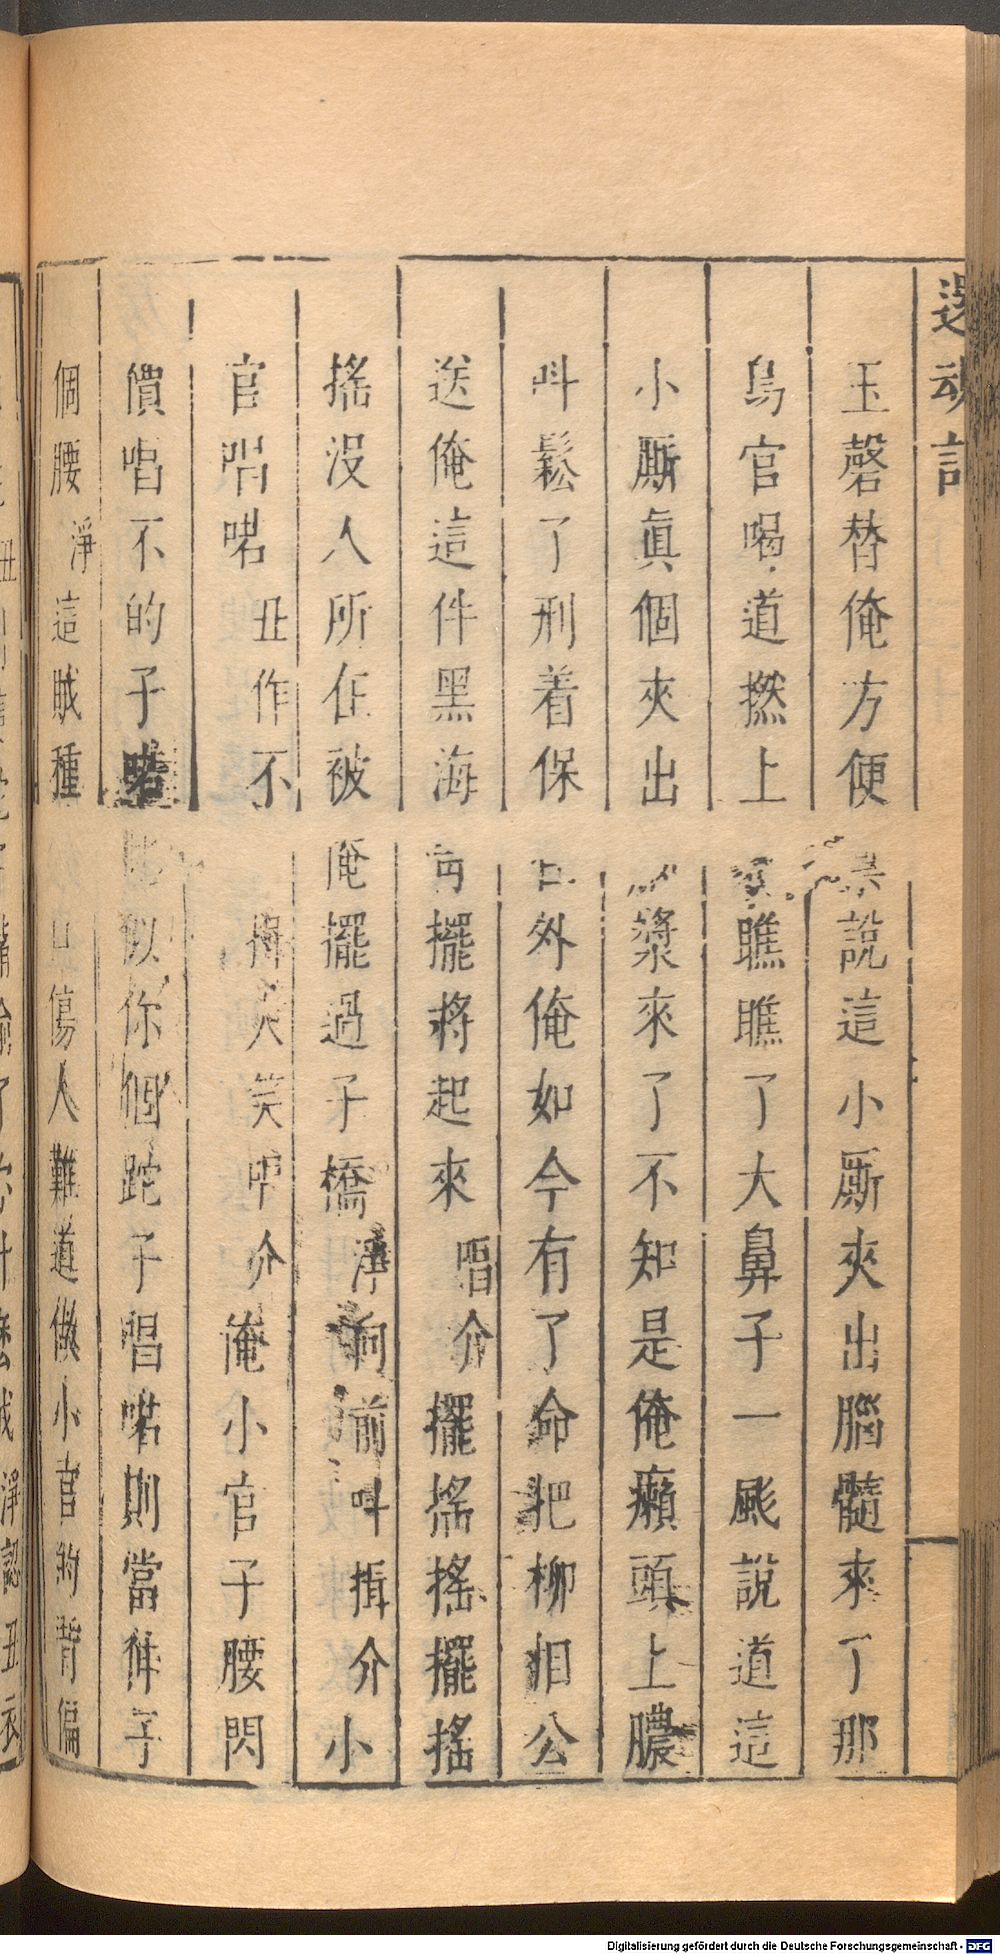 還魂記
玉磬替俺方便禀說這小厮夾出腦髓來了那
鳥官喝道撚上來瞧瞧了大鼻子一颩說道這
小厮眞個夾出腦漿來了不知是俺癩頭上膿
叫鬆了刑着保在外俺如今有了命把柳相公
送俺這件黑海青擺將起來唱介擺摇摇擺摇
摇没人所在被俺擺過子橋淨向前叫揖介小
官唱喏丑作不揖大笑唱介俺小官子腰閃
價唱不的子喏比似你個跎子唱喏則當伸子
個腰淨這賊種傷人難道做小官的背偏
Digitalisierung gefördert durch die Deutsche Forschungsgemeinschaft - DFG